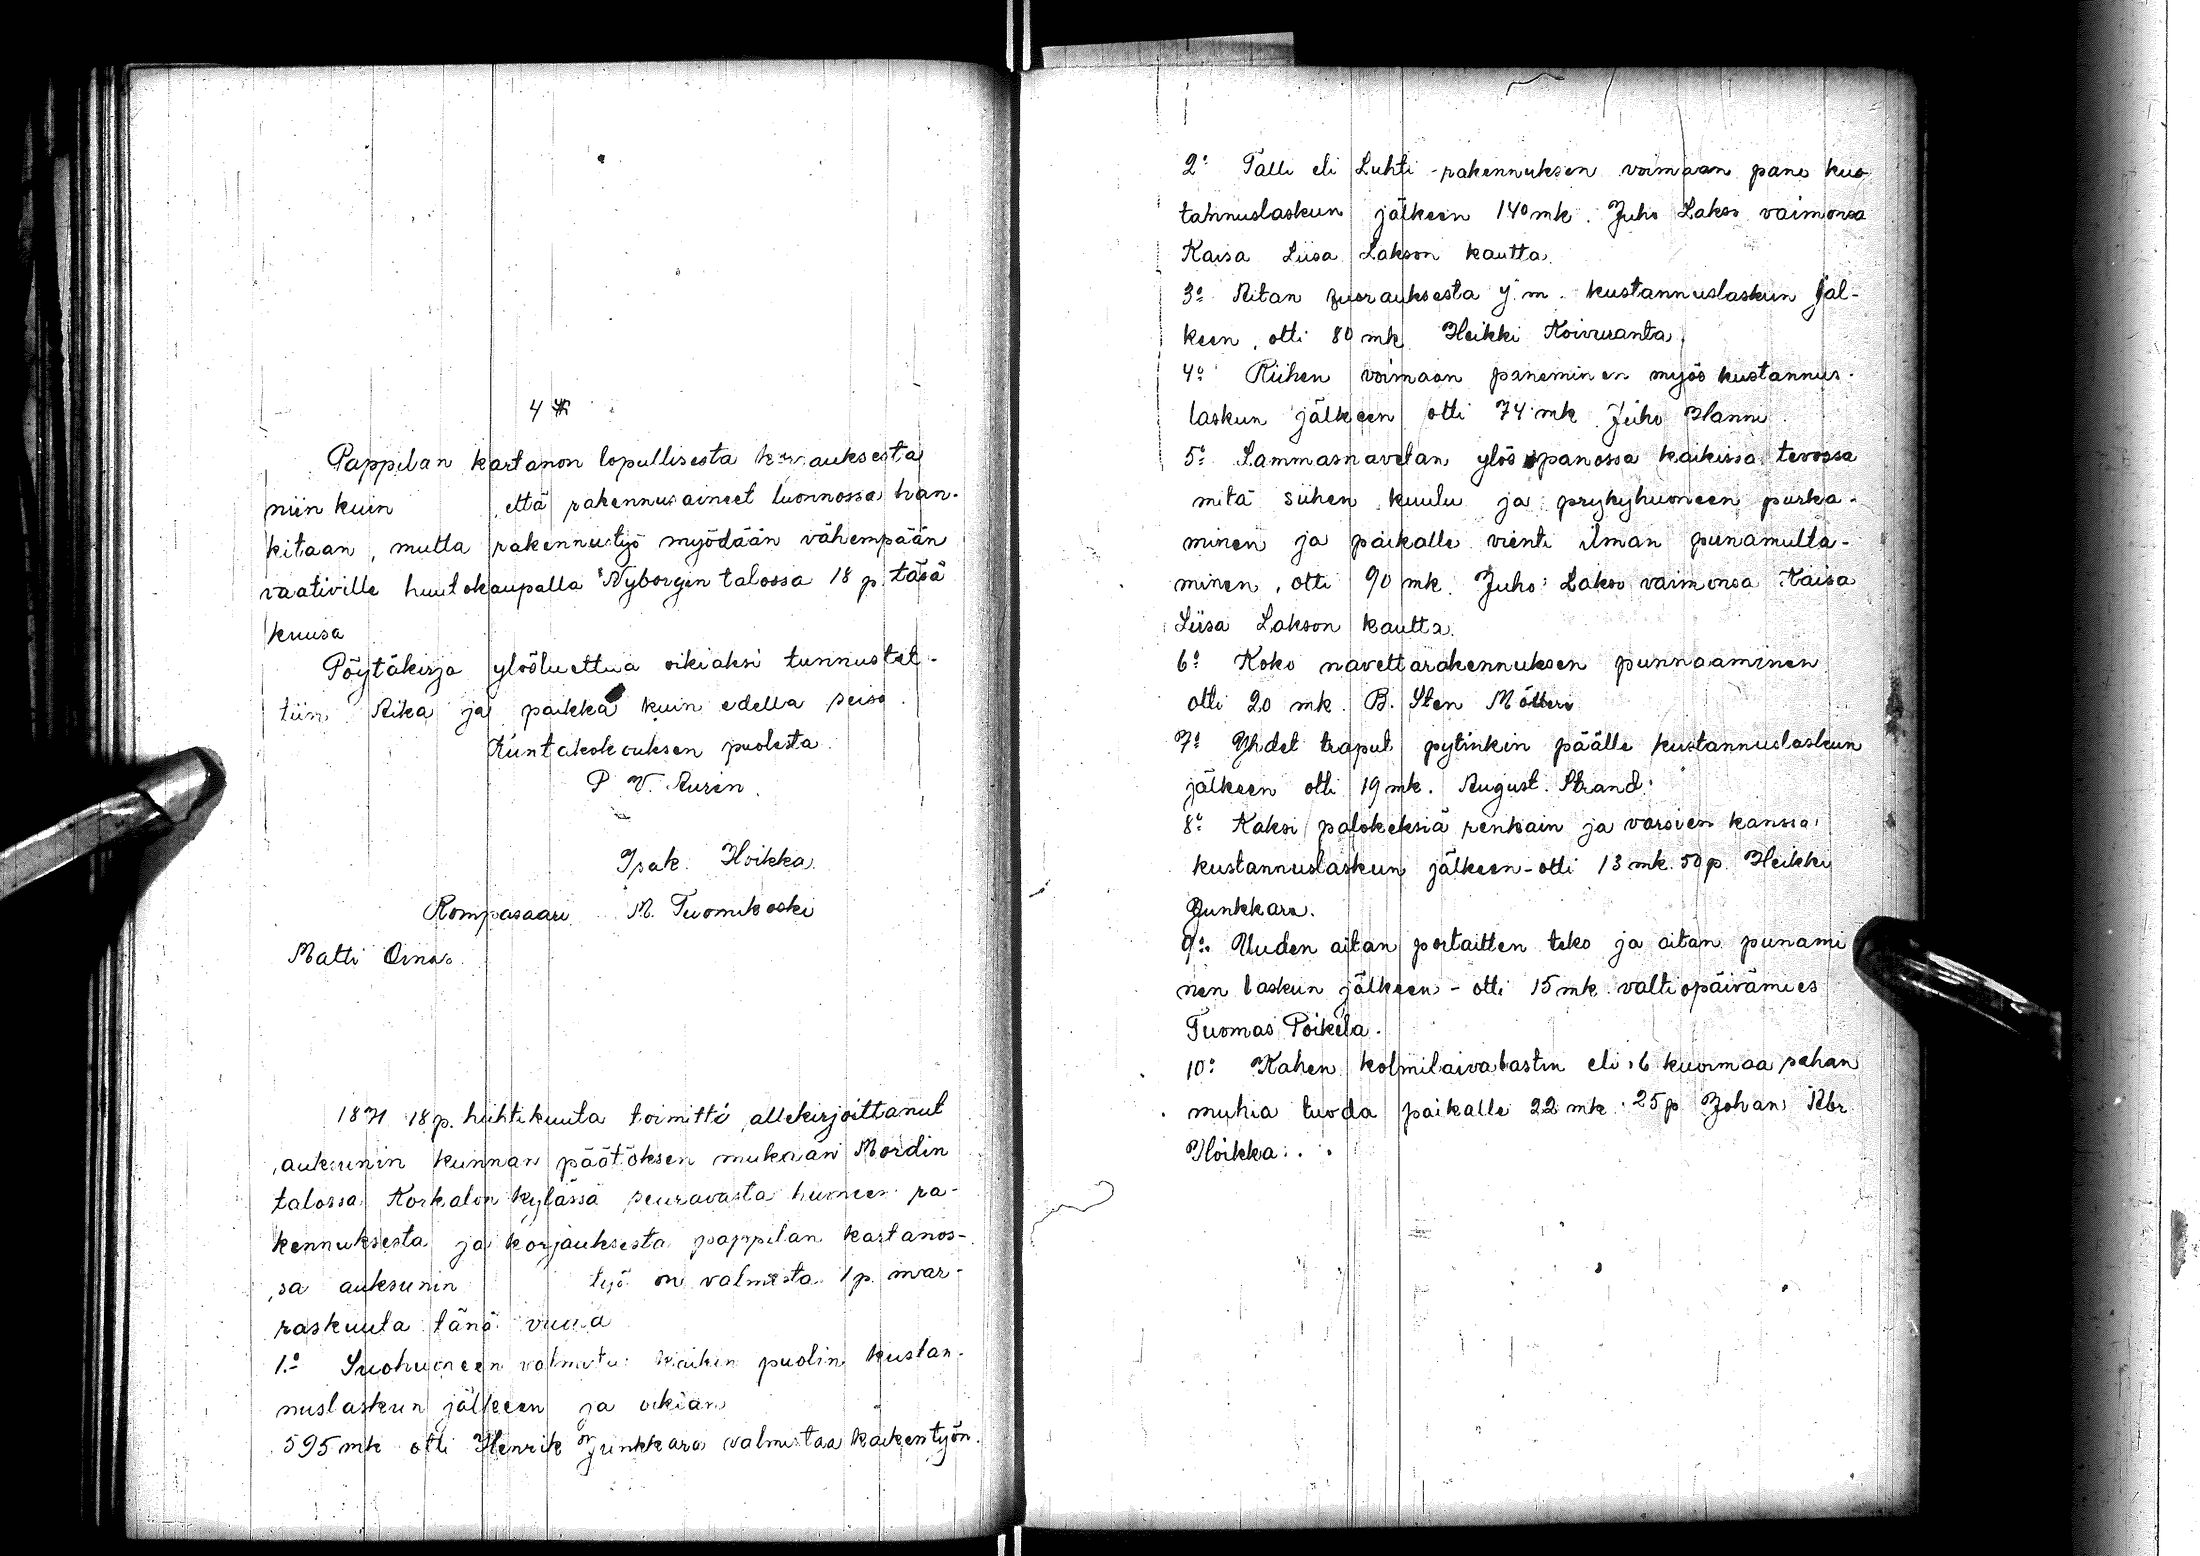 4 §
Pappilan kartanon lopullisesta korjauksesta
niin kuin että rakennusaineet luonnossa han-
kitaan, mutta rakennustyö myödään vähempään
vaativille huutokaupalla Nyborgin talossa 18 p. täsä
kuusa
Pöytäkirja ylösluettua oikiaksi tunnustet-
tiin Aika ja paikka kuin edellä seiso.
Kuntakokouksen puolesta
P. V. Aurén.
Isak Hoikka.
Rompasaari M. Tuomikoski
Matti Oinas.
1871 18 p. huhtikuuta toimitti allekirjoittanut
auksunin kunnan päätöksen mukaan Mordin
talossa Korkalon kylässä seuravasta huoneen ra-
kennuksesta ja korjauksesta pappilan kartanos-
sa auksunin työ on valmista 1 p. mar-
raskuuta tänä vuua
1:o Suohuoneen kaikin puolin kustan-
nuslaskun jälkeen ja oikian
595 mk otti Henrik Junkkara valmistaa kaikentyön.
2:o Talli eli Luhti-rakennuksen voimaan pano kus
tannuslaskun jälkeen 140 mk. Juho Lakso vaimonsa
Kaisa Liisa Lakson kautta.
3:o Aitan vuorauksesta y. m. kustannuslaskun jäl-
keen, otti 80 mk Heikki Koivuranta.
4:o Riihen voimaan paneminen myös kustannus-
laskun jälkeen otti 74 mk Juho Hanni.
5:o Lammasnavetan ylös panossa kaikissa tevossa
mitä siihen kuulu ja prykyhuoneen purka-
minen ja paikalle vienti ilman punamulta-
minen, otti 90 mk. Juho Lakso vaimonsa Kaisa
Liisa Lakson kautta.
6:o Koko navettarakennuksen punnaaminen
otti 20 mk. B. Sten Mölleri
7:o Yhdet traput pytinkin päälle kustannuslaskun
jälkeen otti 19 mk. August. Strand.
8:o Kaksi palokeksiä renkain ja varsien kanssa
kustannuslaskun jälkeen - otti 13 mk. 50 p. Heikki
Junkkara.
9:o Uuden aitan portaitten teko ja aitan punami
nen laskun jälkeen - otti 15 mk. valtiopäivämies
Tuomas Poikela.
10:o Kahen kolmilaivalastin eli 6 kuormaa pahan
muhia tuoda paikalle 22 mk. 25 p Johan Abr.
Hoikka.